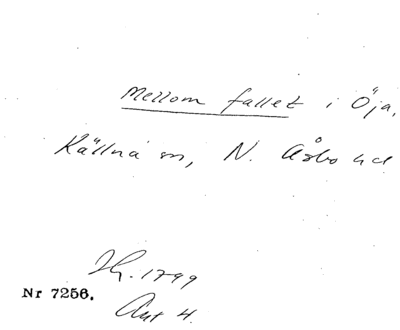 Mellom fallet i Öja,
Källna sn, N. Åsbo hd
Jh. 1799
Nr 7256.
Akt 4.